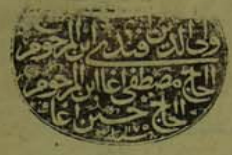 ولى الدين افندى ابن المرحوم
الحاج مصطفى اغا ابن المرحوم
الحاج حسين اغا